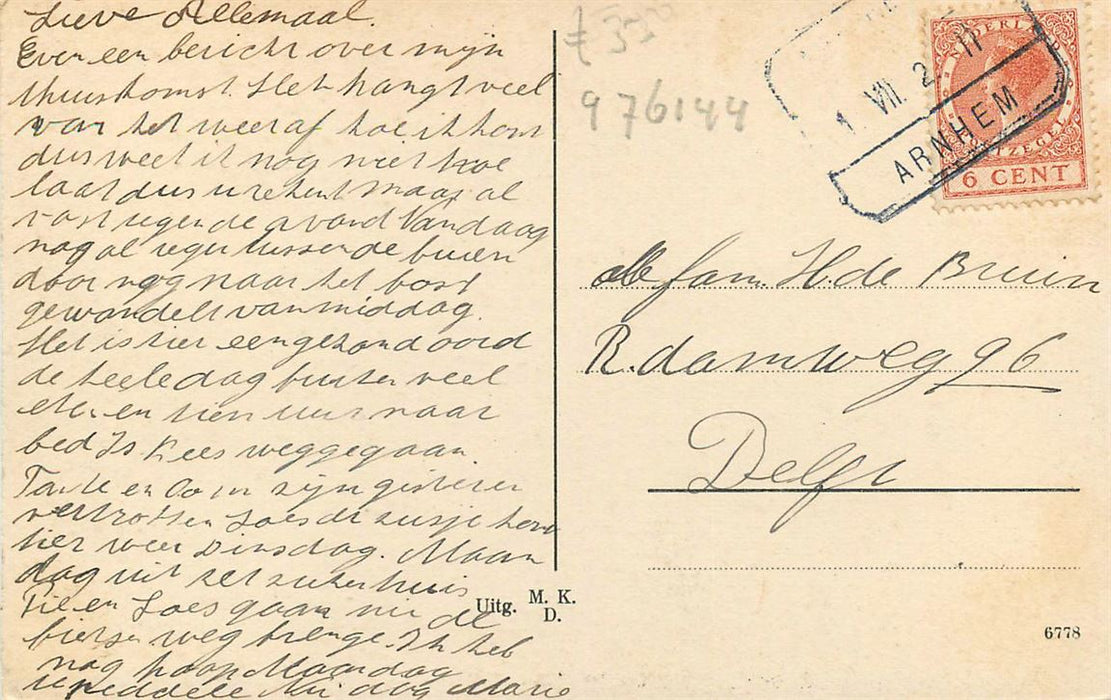 Lieve Allemaal.
Even een bericht over mijn
thuiskomst. Het hangt veel
van het weer af hoe ik kom
dus weet ik nog niet hoe
laat dus u rekent maar al
vast tegen de avond Vandaag
nog al regen tussen de buien
door nog naar het bosch
gewandelt vanmiddag.
Het is hier een gezond oord
de heele dag buiten veel
eten en tien uur naar
bed Is Kees weggegaan.
Tante en Oom zijn gisteren
vertrokken Loes der zusje kom
hier weer Dinsdag. Maan
dag uit het ziekenhuis
Fie en Loes gaan nu de
fietsen weg brenge. Ik heb
nog hoop Maandag
Marie
£ 35
976144
1 VII. 2 11
ARNHEM
NEDERLAND
POSTZEGEL
6 CENT
fam. H. de Bruin
R.damweg 96
Delft
Uitg. M. K.
D.
6778